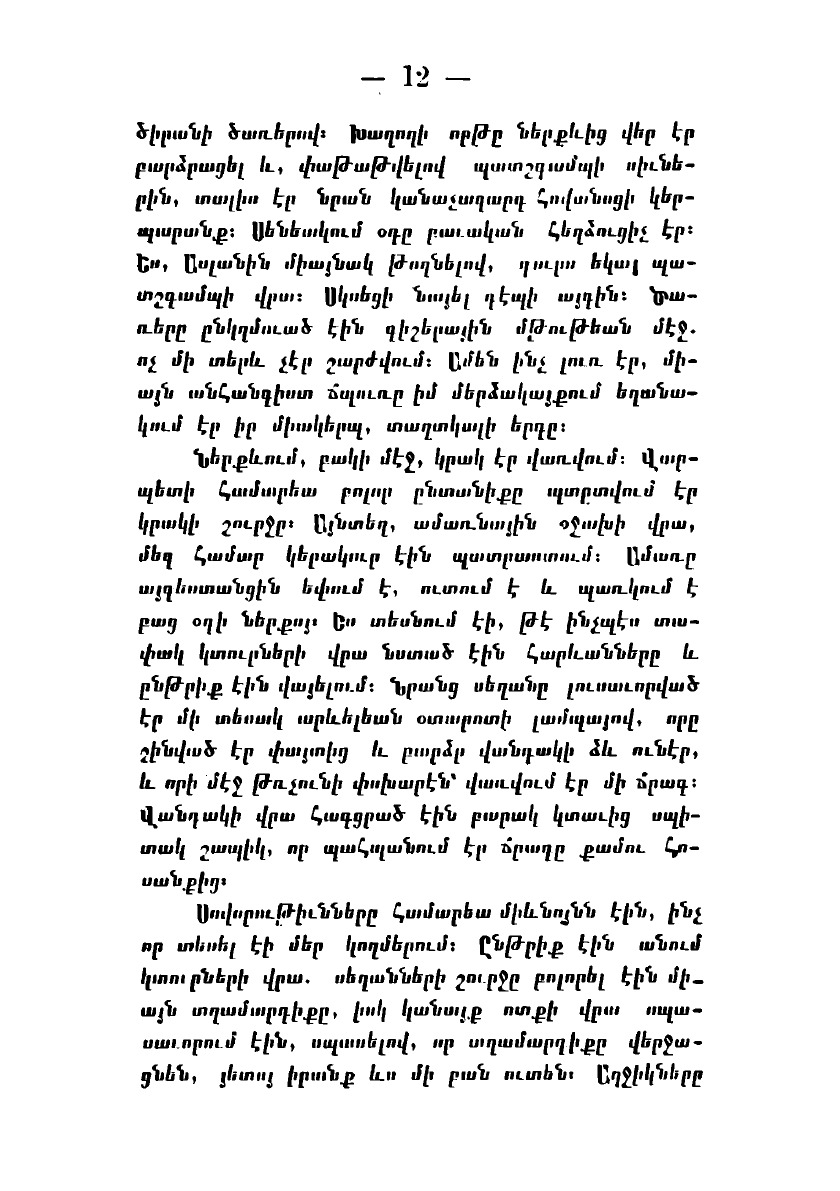 — 12 —
ծիրանի ծառերով։ Խաղողի որթը ներքևից վեր էր
բարձրացել և, փաթաթվելով պատշգամպի սիւնե-
րին, տալիս էր նրան կանաչազարդ հովանոցի կեր-
պարանք։ Սենեակում օդը բաւական հեղձուցիչ էր։
Ես, Ասլանին միայնակ թողնելով, դուրս եկայ պա-
տշգամպի վրա։ Սկսեցի նայել դէպի այգին։ Ծա-
ռերը ընկղմուած էին գիշերային մթութեան մէջ.
ոչ մի տերև չէր շարժվում։ Ամեն ինչ լուռ էր, մի-
այն անհանգիստ ճպուռը իմ մերձակայքում եղանա-
կում էր իր միակերպ, տաղտկալի երգը։
Ներքևում, բակի մէջ, կրակ էր վառվում։ Վար-
պետի համարեա բոլոր ընտանիքը պտրտվում էր
կրակի շուրջը։ Այնտեղ, ամառնային օջախի վրա,
մեզ համար կերակուր էին պատրաստում։ Ամառը
այգեստանցին եփում է, ուտում է և պառկում է
բաց օդի ներքոյ։ Ես տեսնում էի, թէ ինչպէս տա-
փակ կտուրների վրա նստած էին հարևանները և
ընթրիք էին վայելում։ Նրանց սեղանը լուսաւորված
էր մի տեսակ արևելեան օտարոտի լամպայով, որը
շինված էր փայտից և բարձր վանդակի ձև ունէր,
և որի մէջ թռչունի փոխարէն՝ վառվում էր մի ճրագ։
Վանդակի վրա հագցրած էին բարակ կտաւից սպի-
տակ շապիկ, որ պահպանում էր ճրագը քամու հո-
սանքից։
Սովորութիւնները համարեա միևնոյնն էին, ինչ
որ տեսել էի մեր կողմերում։ Ընթրիք էին անում
կտուրների վրա. սեղանների շուրջը բոլորել էին մի-
այն տղամարդիքը, իսկ կանայք ոտքի վրա սպա-
սաւորում էին, սպասելով, որ տղամարդիքը վերջա-
ցնեն, յետոյ իրանք ևս մի բան ուտեն։ Աղջիկները